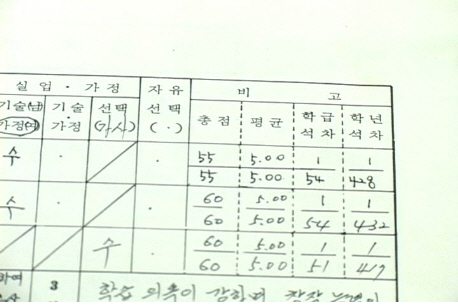 실 업 · 가 정 자 유 비 고
기술(남) 기 술 선 택 선 택 총 점 평 균 학 급 학 년
가정(여) · 가 정 (가사) ( . ) 석 차 석 차
수 · · 55 5.00 1 1
55 5.00 54 428
수 · · 60 5.00 1 1
60 5.00 54 432
수 · 60 5.00 1 1
60 5.00 51 419
하여 3 학습 의욕이 강하며